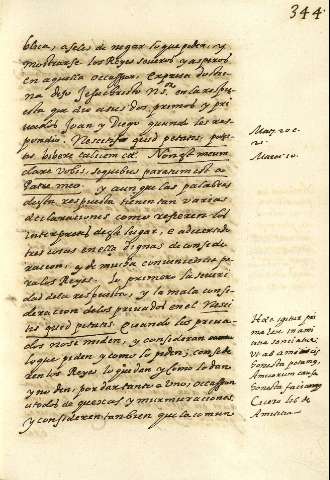 344
blica, a seles de negar lo que piden, y
mostrarse los Reyes seueros y asperos
en aquella occassion, expresa doctri
na dejo Jesuchristo Ns.ʳ en la respu
esta que dio a sus dos primos y pri
uados Juan y Diego quando les res
pondio, Nescitis quid petatis, potes
tis bibere calicem &. Non est meum
dare vobis, sed quibus paratum est a
Patre meo. y aunque las palabras
desta respuesta tienen tan varias
declaraciones como refieren los
interpretes deste lugar, e aduertido
tres cosas en ella dignas de conside
racion, y de mucha conueniencia pa
ra los Reyes. Lo primero la seueri
dad de la respuesta, y la mala consi
deracion de los priuados en el Nesci
tis quid petatis. Quando los priua
dos no se miden, y consideran
lo que piden y como lo piden, conside
ren los Reyes lo que dan y como lo dan
y no den, por dar tanto a uno, occassion
a todos de quexas y murmuraciones
y consideren tanbien que la comun
Matt. 20. e.
21.
Marc. 10.
Hæc igitur pri
ma lex in ami
citia sanciatur,
Vt ab amicis
honesta petamus,
Amicorum causa
honesta faciamus
Cicero lib. de
Amicitia